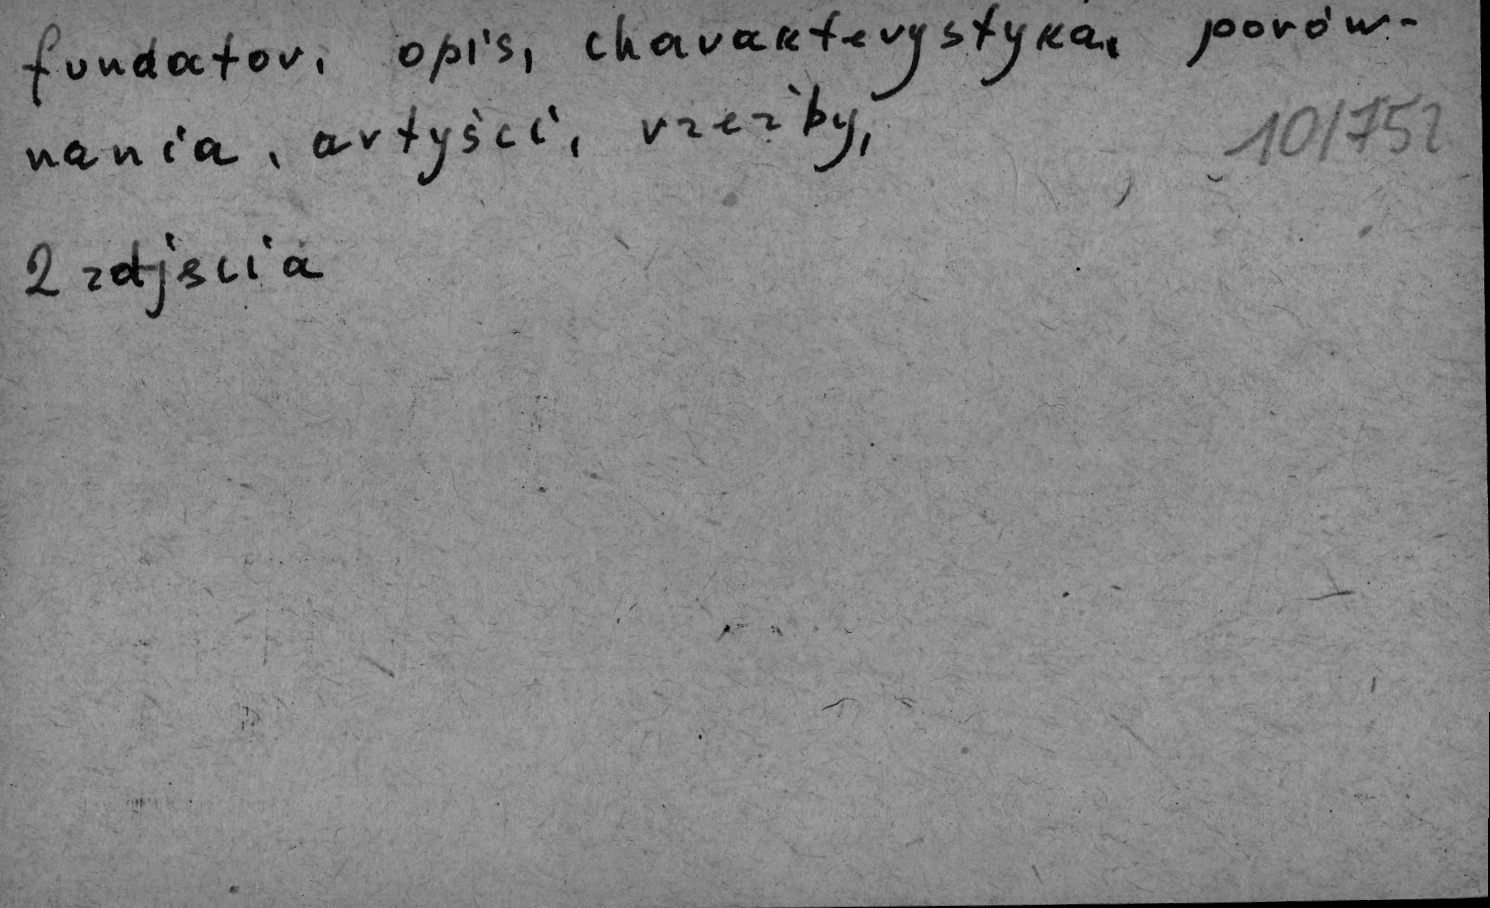 fundator, opis, charakterystyka, porów-
nania, artyści, rzeźby,
10/752
2 zdjścia